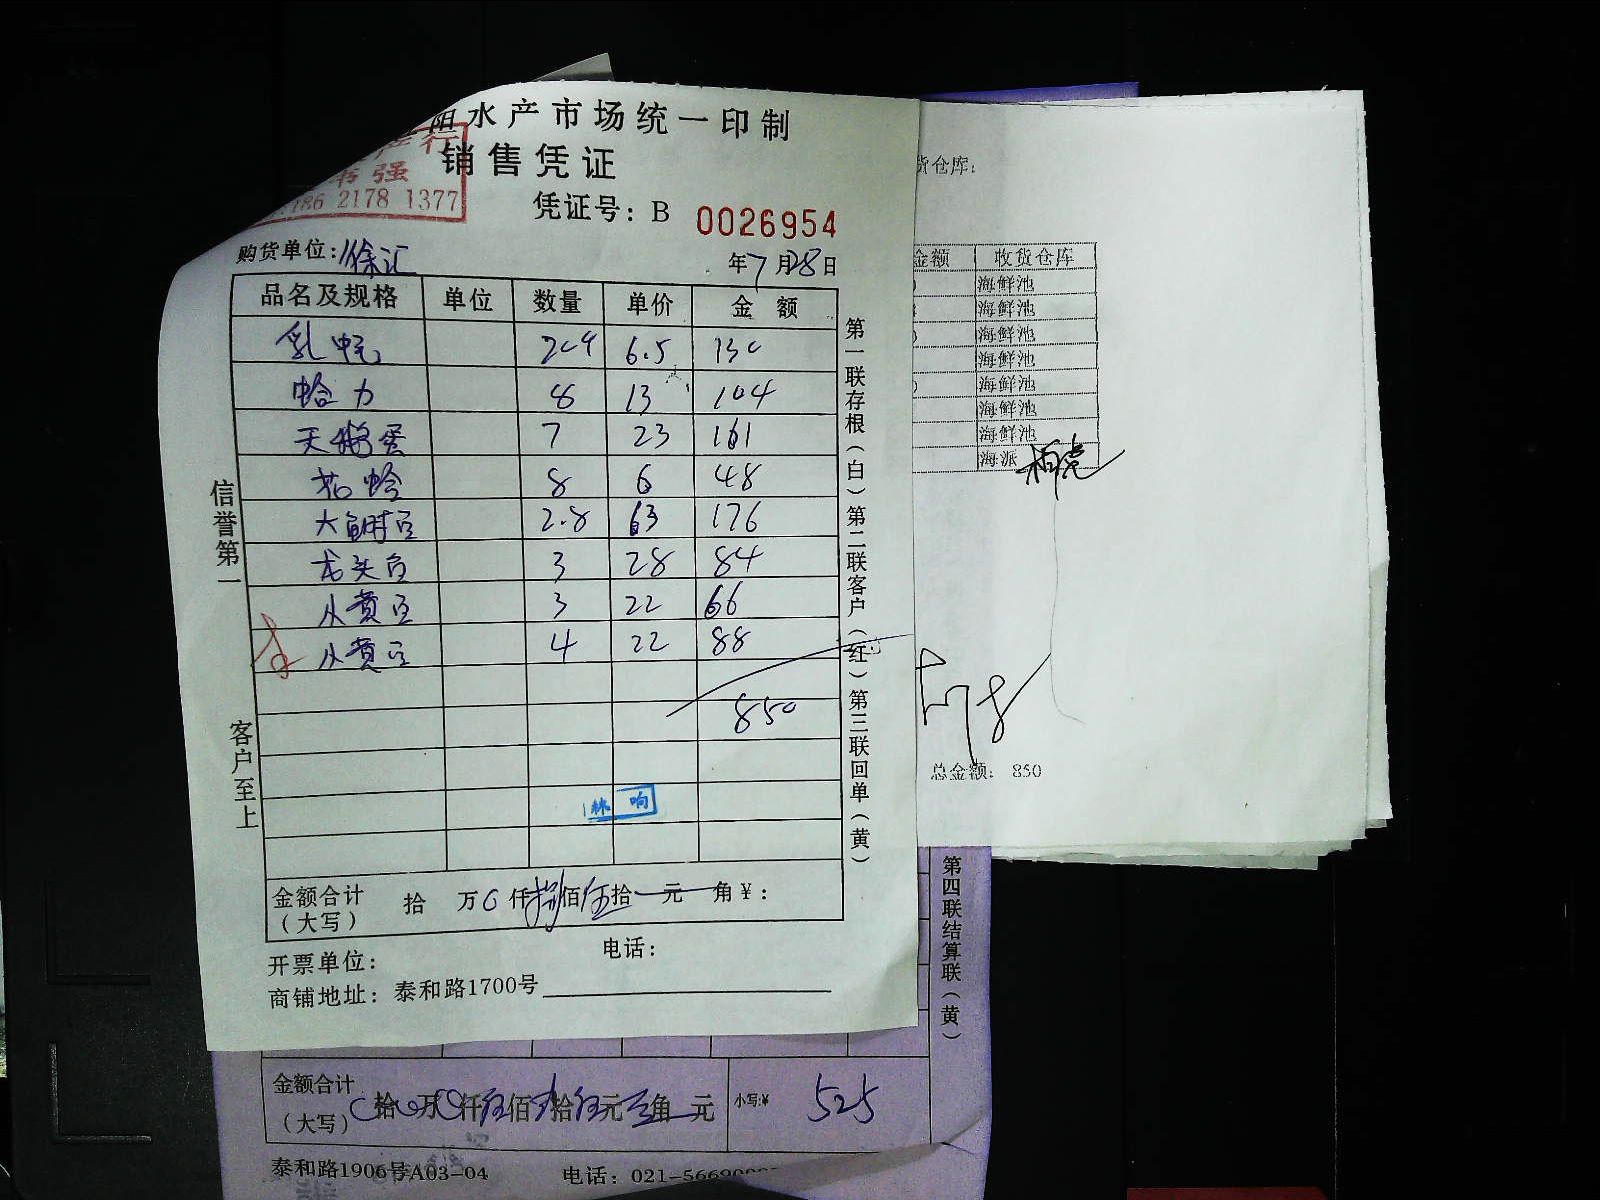 阳水产市场统一印制
销售凭证
行
书强
186 2178 1377
凭证号：B 0026954
购货单位：徐汇
年7月28日
品名及规格 单位 数量 单价 金额
乳 6.5
蛤力 8 13 104
天鹅蛋 7 23 161
花蛤 8 6 48
大 2.8 63 176
龙头 3 28 84
3 22 66
4 22 88
850
林响
金额合计（大写） 拾 万0仟捌佰伍拾 元 角￥：
开票单位： 电话：
商铺地址：泰和路1700号
信誉第一
客户至上
第一联存根（白）第二联客户（红）第三联回单（黄）
货仓库：
金额 收货仓库
海鲜池
海鲜池
海鲜池
海鲜池
海鲜池
海鲜池
海鲜池
海派
总金额： 850
第四联结算联（黄）
金额合计（大写） 拾 万 仟伍佰 拾伍元 角 元 小写：￥ 525
泰和路1906号A03-04 电话：021-5669